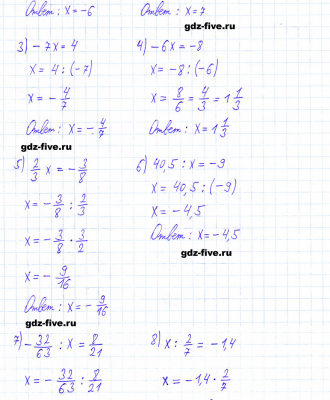 Ответ: x = -6
Ответ: x = 7
gdz-five.ru
3) -7x = 4
x = 4 : (-7)
x = - 4/7
Ответ: x = - 4/7
gdz-five.ru
4) -6x = -8
x = -8 : (-6)
x = 8/6 = 4/3 = 1 1/3
Ответ: x = 1 1/3
5) 2/3 x = - 3/8
x = - 3/8 : 2/3
x = - 3/8 · 3/2
x = - 9/16
Ответ: x = - 9/16
gdz-five.ru
6) 40,5 : x = -9
x = 40,5 : (-9)
x = -4,5
Ответ: x = -4,5
gdz-five.ru
7) - 32/63 : x = 8/21
x = - 32/63 : 8/21
8) x : 2/7 = -1,4
x = -1,4 · 2/7